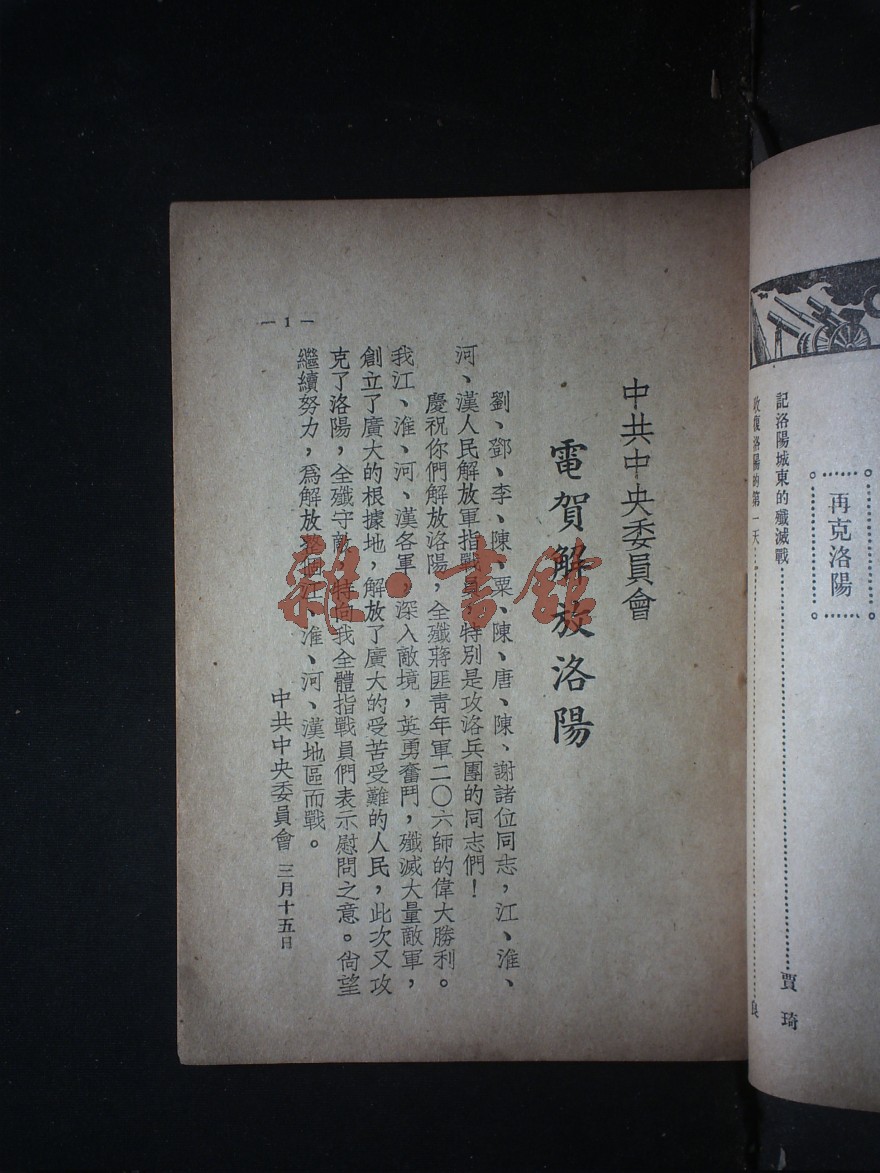 再克洛陽
記洛陽城東的殲滅戰 賈琦
收復洛陽的第一天
中共中央委員會
電賀解放洛陽
劉、鄧、李、陳、粟、陳、唐、陳、謝諸位同志，江、淮、
河、漢人民解放軍指戰員，特別是攻洛兵團的同志們！
慶祝你們解放洛陽，全殲蔣匪青年軍二〇六師的偉大勝利。
我江、淮、河、漢各軍，深入敵境，英勇奮鬥，殲滅大量敵軍，
創立了廣大的根據地，解放了廣大的受苦受難的人民，此次又攻
克了洛陽，全殲守敵，特向我全體指戰員們表示慰問之意。尙望
繼續努力，爲解放整個江、淮、河、漢地區而戰。
中共中央委員會 三月十五日
— 1 —
雜·書館